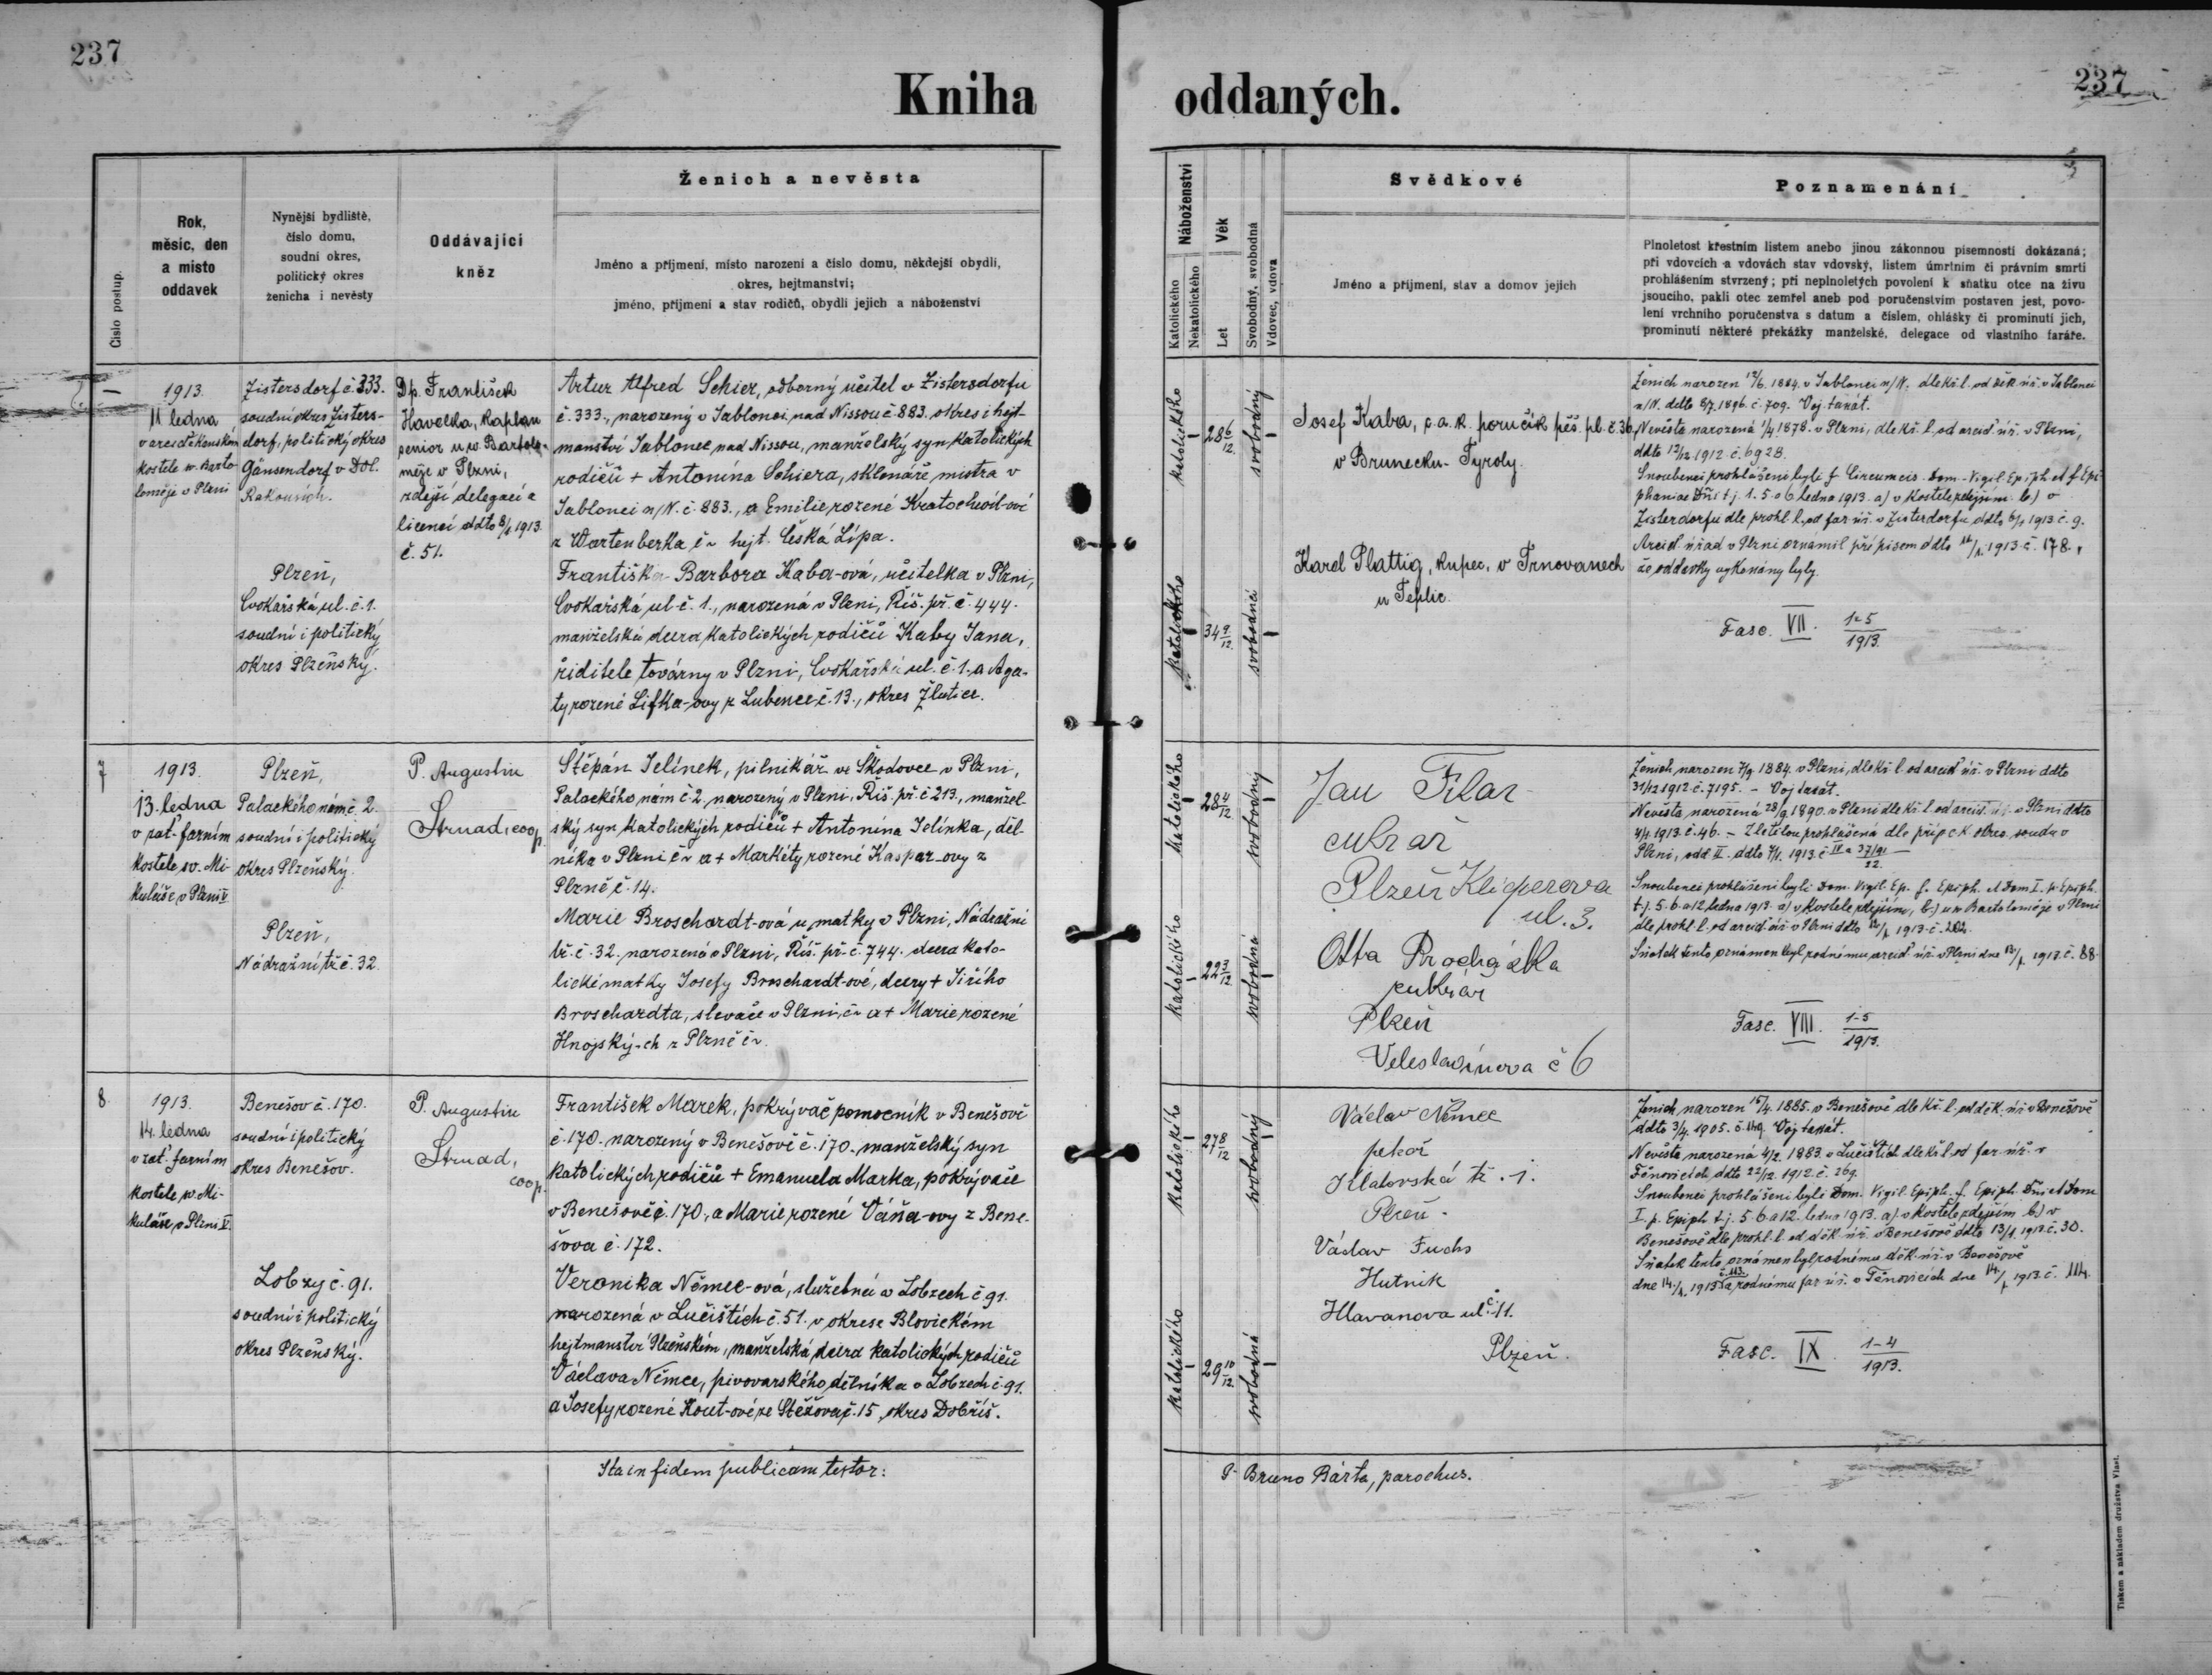 237
237
Kniha oddaných.
Číslo postup.
Rok,
měsíc, den
a místo
oddavek
Nynější bydliště,
číslo domu,
soudní okres,
politický okres
ženicha i nevěsty
Oddávající
kněz
Ženich a nevěsta
Jméno a příjmení, místo narození a číslo domu, někdejší obydlí,
okres, hejtmanství;
jméno, příjmení a stav rodičů, obydlí jejich a náboženství
Náboženství
Katolického
Nekatolického
Věk
Let
Svobodný, svobodná
Vdovec, vdova
Svědkové
Jméno a příjmení, stav a domov jejich
Poznamenání
Plnoletost křestním listem anebo jinou zákonnou písemností dokázaná;
při vdovcích a vdovách stav vdovský, listem úmrtním či právním smrti
prohlášením stvrzený; při neplnoletých povolení k sňatku otce na živu
jsoucího, pakli otec zemřel aneb pod poručenstvím postaven jest, povo-
lení vrchního poručenstva s datum a číslem, ohlášky či prominutí jich,
prominutí některé překážky manželské, delegace od vlastního faráře.
—
1913.
11 ledna
v arciděkanském
kostele sv. Barto-
loměje v Plzni
Zistersdorf č. 333.
soudní okres Zisters-
dorf, politický okres
Gänsendorf v Dol.
Rakousích.
Plzeň,
Cvokařská ul. č. 1.
soudní i politický
okres Plzeňský.
Dp. František
Havelka, kaplan
senior u sv. Bartolo-
měje v Plzni,
zdejší delegací a
licencí ddto 8/1 1913.
č. 51.
Artur Alfred Schier, odborný učitel v Zistersdorfu
č. 333., narozený v Jablonci nad Nissou č. 883. okres i hejt-
manství Jablonec nad Nissou, manželský syn katolických
rodičů + Antonína Schiera, sklenáře mistra v
Jablonci n/N. č. 883., a Emilie rozené Kratochwil-ové
z Wartenberka č ~ hejt. Česká Lípa.
Františka Barbora Kaba-ová, učitelka v Plzni,
Cvokařská ul. č. 1., narozená v Plzni, Říš. př. č. 444.
manželská dcera katolických rodičů Kaby Jana,
řiditele továrny v Plzni, Cvokařská ul. č. 1. a Aga-
ty rozené Lifka-ovy z Lubence č. 13., okres Žlutice.
katolického
28 6/12
svobodný
katolického
34 9/12
svobodná
Josef Kaba, c. a. k. poručík pěš. pl. č 36.
v Brunecku - Tyroly.
Karel Plattig, kupec, v Trnovanech
u Teplic.
Ženich narozen 12/6. 1884. v Jablonci n/N. dle kř. l. od děk. úř. v Jablonci
n/N. ddto 8/7. 1896. č. 709. Voj. taxát.
Nevěsta narozená 1/4 1878. v Plzni, dle kř. l. od arcid. úř. v Plzni,
ddto 12/12 1912 č. 6928.
Snoubenci prohlášeni byli f. Circumcis. Dom. Vigil. Epiph et f. Epi-
phaniae Dñi t. j. 1. 5. a 6 ledna 1913. a) v kostele zdejším b) v
Zisterdorfu dle prohl. l. od far. úř. v Zisterdorfu ddto 6/1 1913. č. 9.
Arcid úřad v Plzni oznámil přípisem ddto 11/1. 1913 č. 178.,
že oddavky vykonány byly.
Fasc. VII. 1-5/1913.
7
1913.
13. ledna
v zat. farním
kostele sv. Mi-
kuláše v Plzni V.
Plzeň,
Palackého nám č. 2.
soudní i politický
okres Plzeňský.
Plzeň,
Nádražní tř. č. 32.
P. Augustin
Strnad, coop.
Štěpán Jelínek, pilnikář ve Škodovce v Plzni,
Palackého nám č. 2. narozený v Plzni, Říš. př. č 213., manžel-
ský syn katolických rodičů + Antonína Jelínka, děl-
níka v Plzni č ~ a + Markéty rozené Kaspar-ovy z
Plzně č. 14.
Marie Broschardt-ová u matky v Plzni, Nádražní
tř. č. 32. narozená v Plzni, Říš. př. č. 744. dcera kato-
lické matky Josefy Broschardt-ové, dcery + Jiřího
Broschardta, slevače v Plzni, č ~ a + Marie rozené
Hnojský-ch z Plzně č ~.
katolického
28 4/12
svobodný
katolického
22 3/12
svobodná
Jan Filar
cukrář
Plzeň Klicperova
ul. 3.
Otta Procházka
cukrář
Plzeň
Veleslavínova č 6
Ženich narozen 7/9. 1884. v Plzni, dle kř. l. od arcid úř. v Plzni ddto
31/12 1912 č. 7195. - Voj. taxát.
Nevěsta narozená 28/9. 1890. v Plzni dle kř. l. od arcid. úř. v Plzni ddto
4/1 1913. č. 46. - Zletilou prohlášená dle příp. c. k okres. soudu v
Plzni, odd. II. ddto 7/1. 1913. č
Snoubenci prohlášeni byli Dom. Vigil. Ep. f. Epiph. et Dom I. p. Epiph.
t. j. 5. 6. a 12 ledna 1913. a) v kostele zdejším, b.) u sv. Bartoloměje v Plzni
dle prohl. l. od arcid úř. v Plzni ddto 12/1 1913. č. 202.
Sňatek tento oznámen byl rodnému arcid. úř. v Plzni dne 13/1. 1913. č. 88.
Fasc. VIII. 1-5/1913.
8
1913.
14. ledna
v zat. farním
kostele sv. Mi-
kuláše v Plzni V.
Benešov č. 170.
soudní i politický
okres Benešov.
Lobzy č. 91.
soudní i politický
okres Plzeňský.
P. Augustin
Strnad,
coop.
František Marek, pokrývač pomocník v Benešově
č. 170. narozený v Benešově č. 170. manželský syn
katolických rodičů + Emanuela Marka, pokrývače
v Benešově č. 170., a Marie rozené Váňa-ovy z Bene-
šova č. 172.
Veronika Němec-ová, služebná v Lobzech č 91.
narozená v Lučištích č. 51. v okrese Blovickém
hejtmanství Plzeňském, manželská dcera katolických rodičů
Václava Němce, pivovarského dělníka v Lobzech č. 91.
a Josefy rozené Kout-ové ze Stěžova č. 15, okres Dobříš.
katolického
27 8/12
svobodný
katolického
29 10/12
svobodná
Václav Němec
pekař
Klatovská tř. 1.
Plzeň.
Václav Fuchs
Hutník
Hlavanova ul. č. 11.
Plzeň.
Ženich narozen 15/4. 1885. v Benešově dle kř. l. od děk. úř. v Benešově
ddto 3/4. 1905. č. 149. Voj taxát.
Nevěsta narozená 4/2. 1883. v Lučištích dle kř. l. od far. úř. v
Těnovicích ddto 22/12. 1912. č. 269.
Snoubenci prohlášeni byli Dom. Vigil. Epiph. f. Epiph. Dñi et Dom
I. p. Epiph t. j. 5. 6. a 12. ledna 1913. a) v kostele zdejším b) v
Benešově dle prohl. l. od děk. úř. v Benešově ddto 13/1. 1913. č. 30.
Sňatek tento oznámen byl rodnému děk. úř. v Benešově
dne 14./1. 1913 č. 113. a rodnému far. úř. v Těnovicích dne 14./1 1913. č. 114.
Fasc. IX. 1-4/1913.
Ita in fidem publicam testor:
P. Bruno Bárta, parochus.
Tiskem a nákladem družstva Vlast.